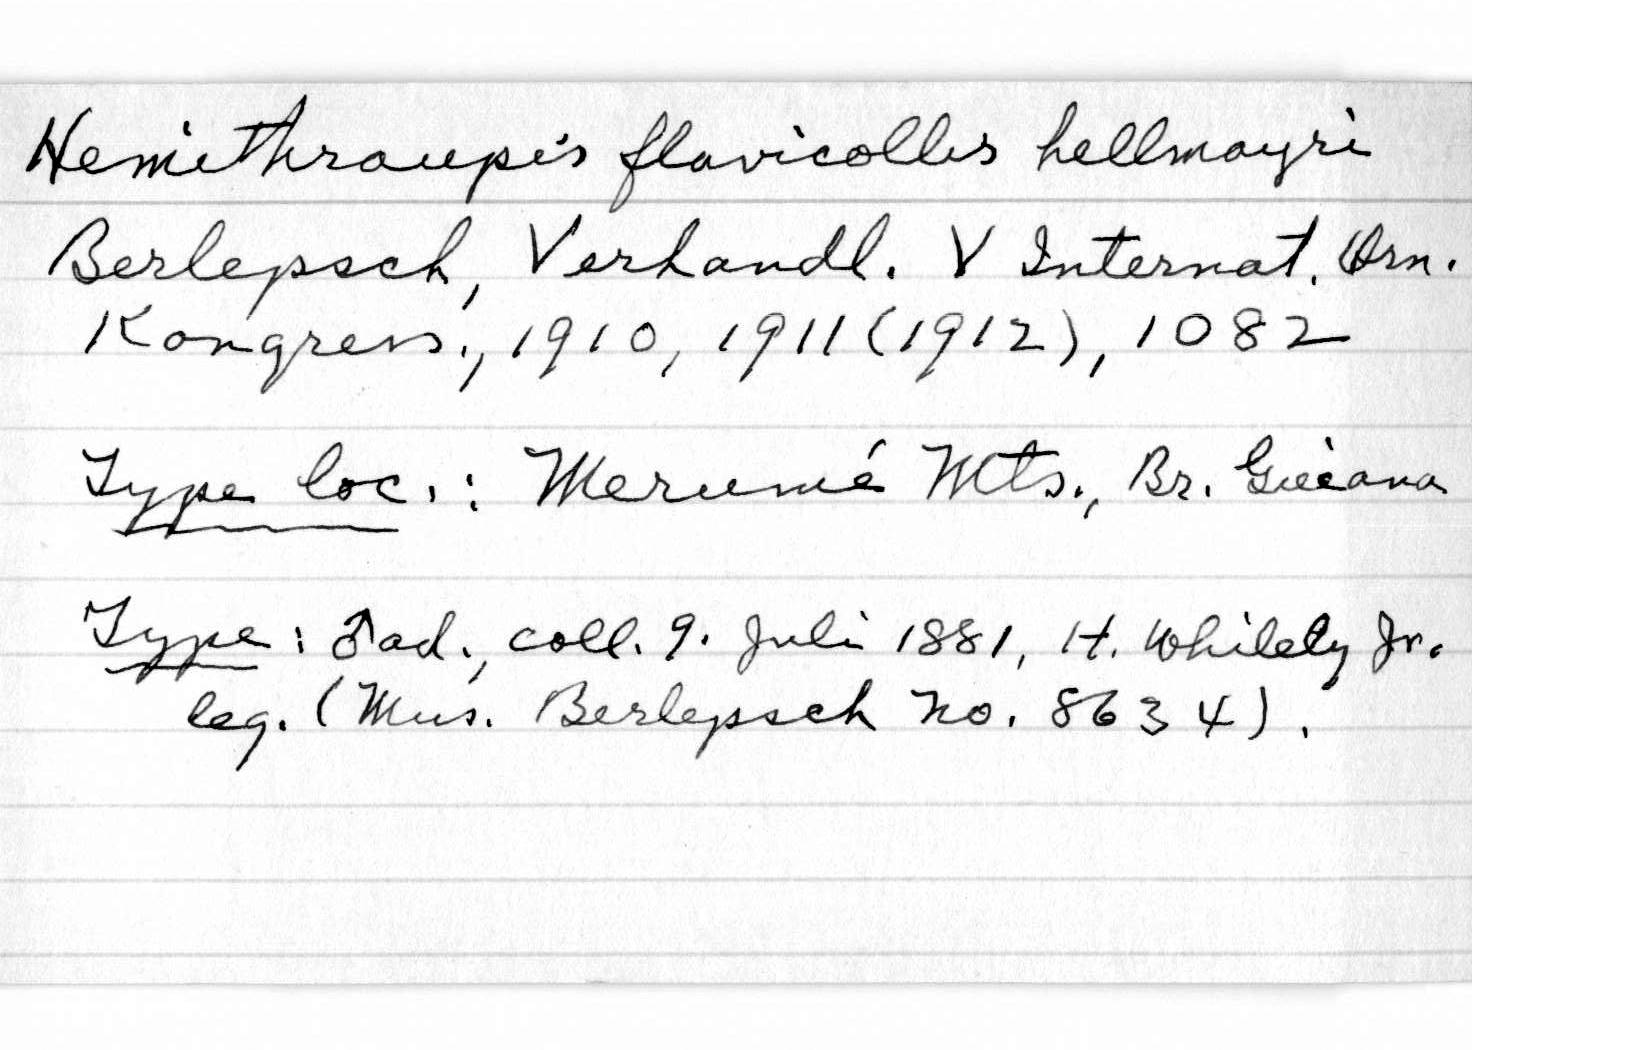 Hemithraupis flavicollis hellmayri
Berlepsch, Verhandl. V Internat. Orn.
Kongress., 1910, 1911 (1912), 1082
Type loc.: Merumé Mts., Br. Guiana
Type: ♂ ad., coll. 9. Juli 1881, H. Whitely Jr.
leg. (Mus. Berlepsch no. 8634).